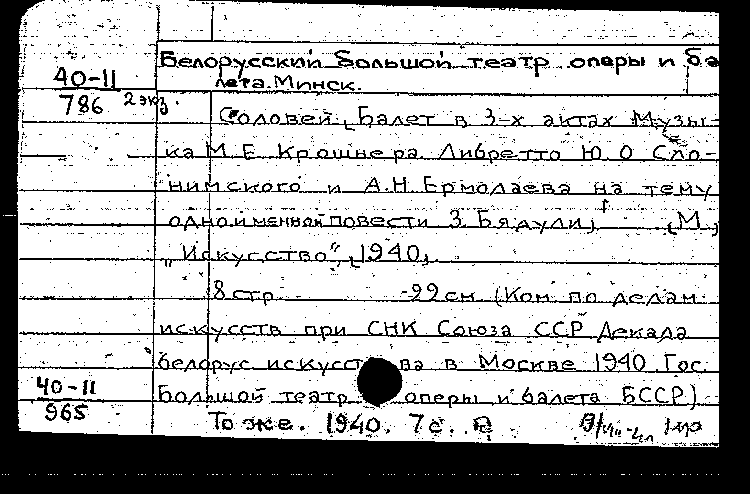 Белорусский большой театр оперы и ба
лета. Минск.
40-11
786 2 экз.
Соловей. [Балет в 3-х актах Музы-
ка М. Е. Крошнера. Либретто Ю. О Сло-
нимского и А.Н. Ермолаева на тему
одноименной повести З. Бядули]. [М.]
„Искусство", [1940].
8 стр. 22 см. (Ком. по делам
искусств при СНК Союза ССР Декада
белорус искусства в Москве 1940. Гос.
Большой театр оперы и балета БССР)
40-11
965
То же. 1940. 7 с.